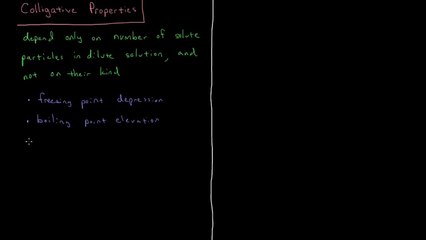 Colligative Properties
depend only on number of solute
particles in dilute solution, and
not on their kind
• freezing point depression
• boiling point elevation